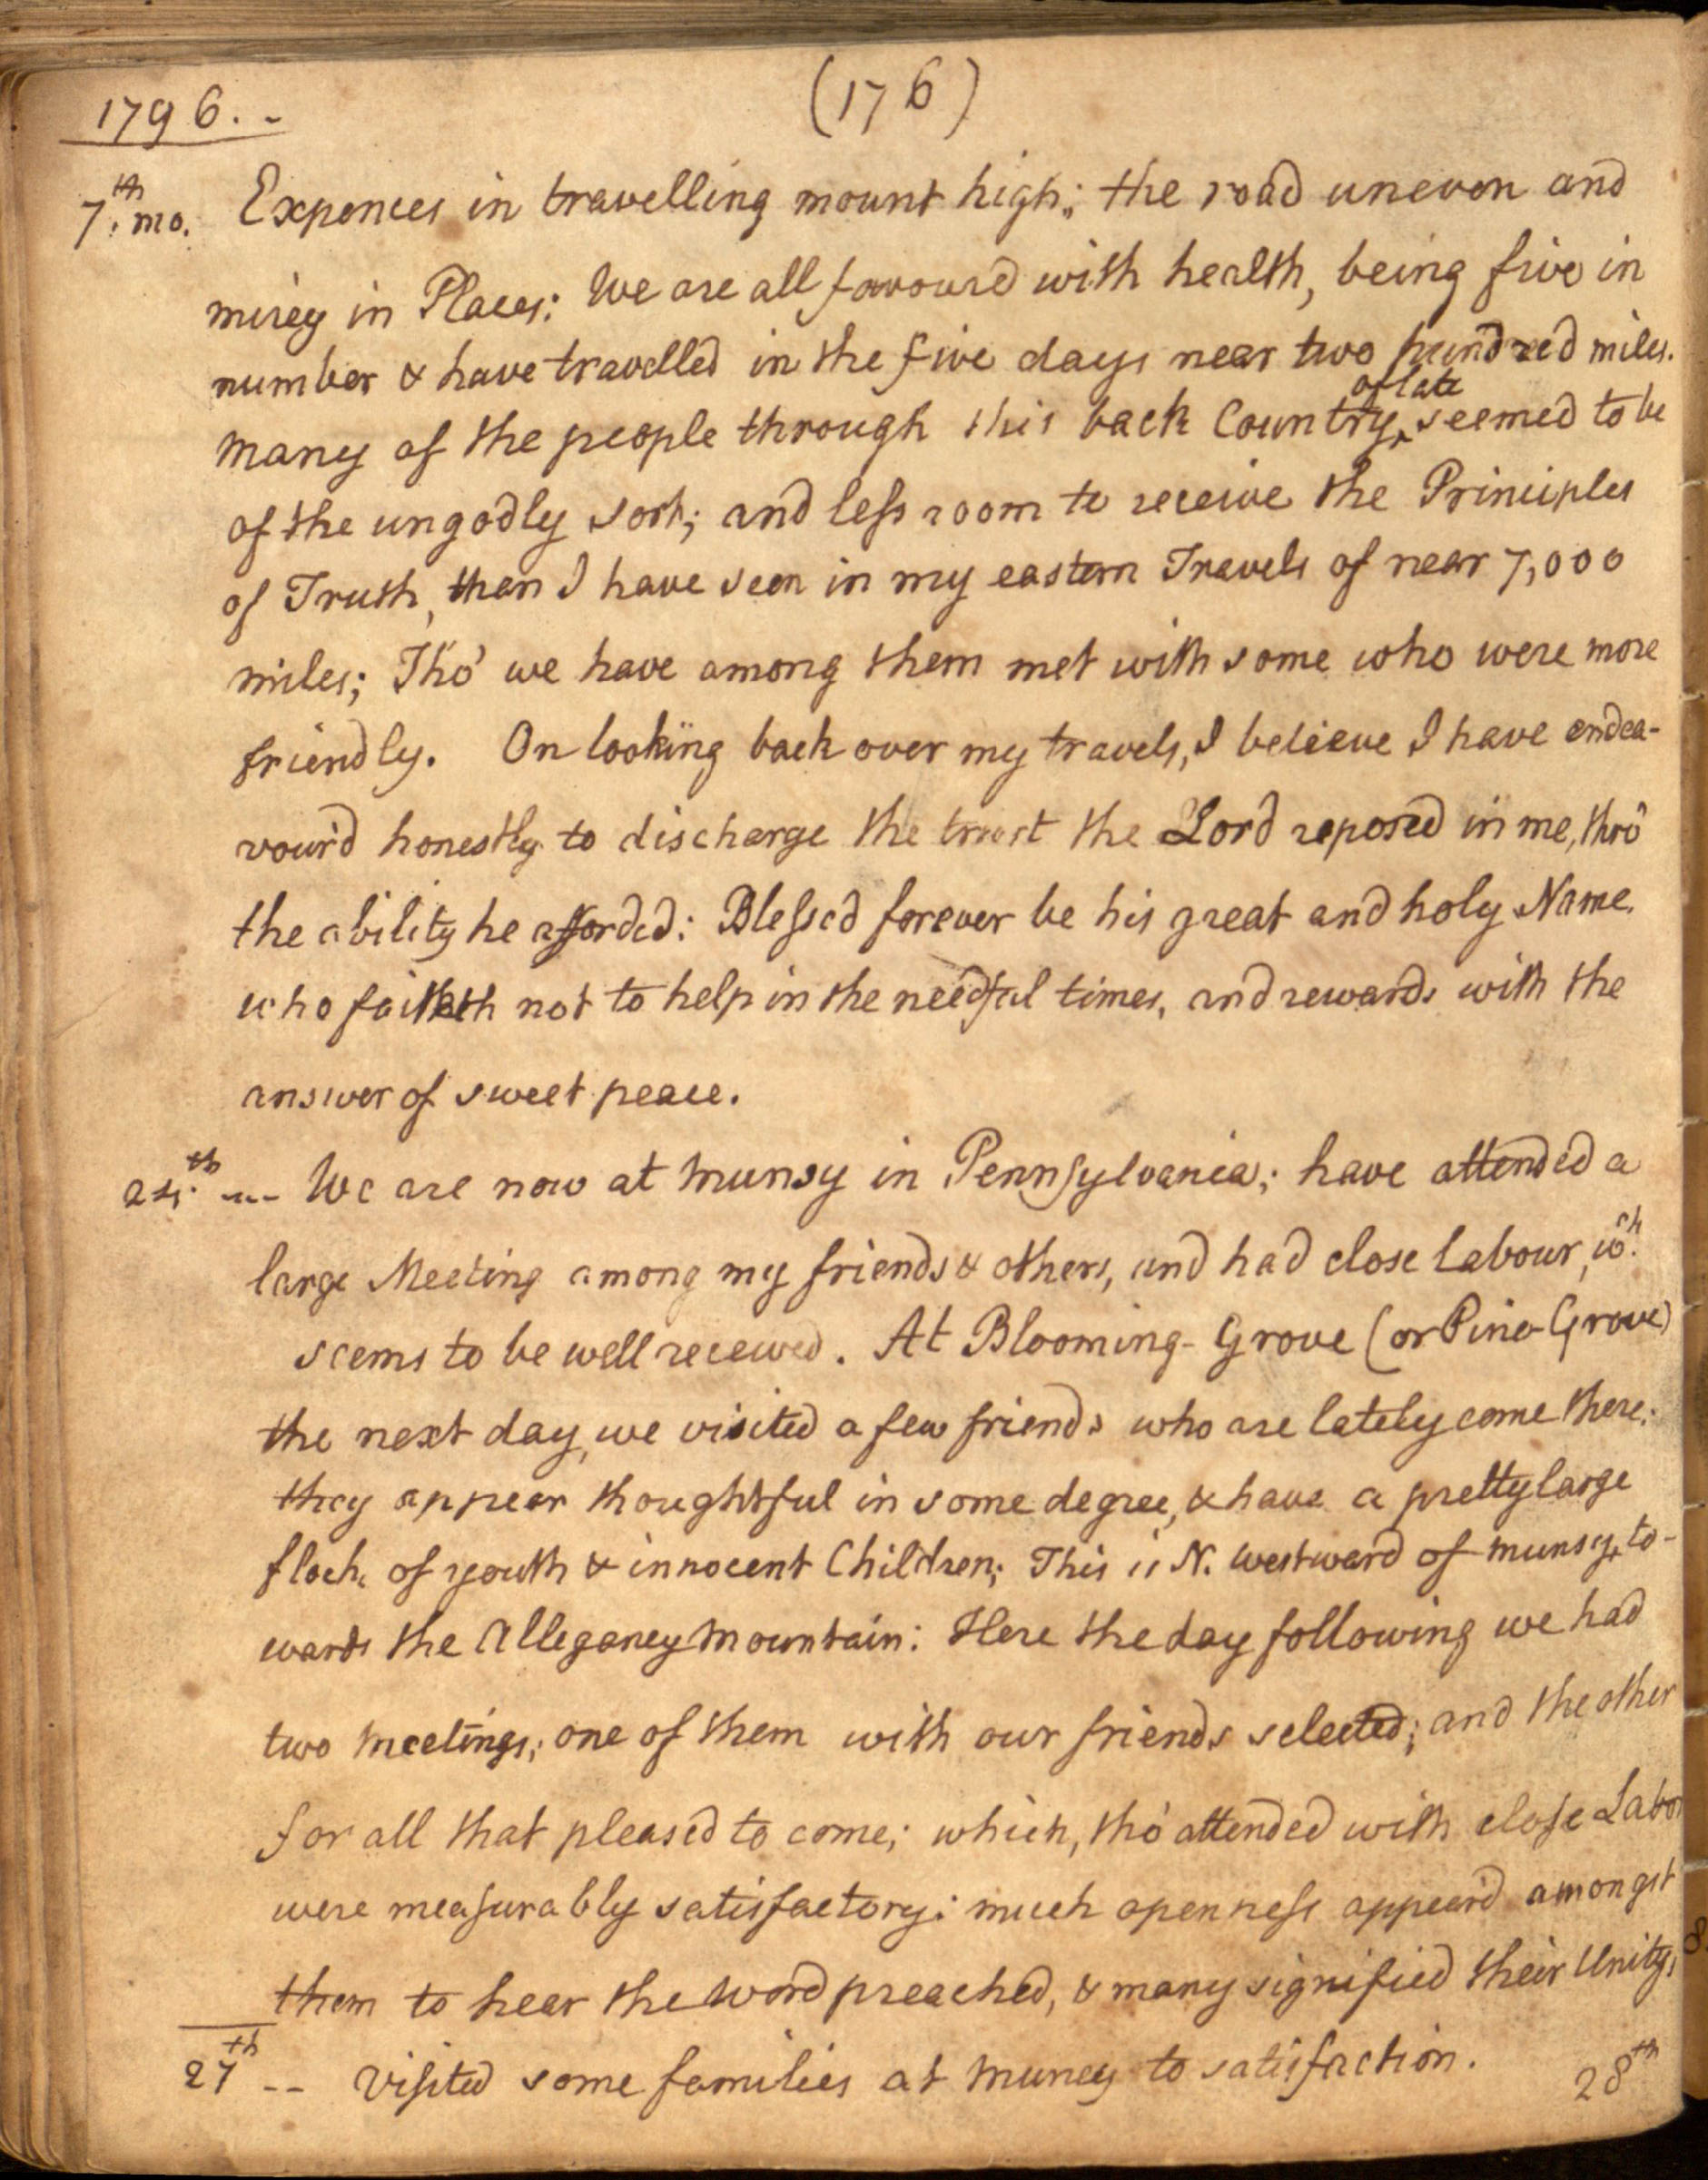 1796. -
(176)
7.th mo. Expences in travelling mount high; the road uneven and
mirey in Places: We are all favoured with health, being five in
number & have travelled in the five days near two hundred miles.
many of the people through this back Country, of late seemed to be
of the ungodly sort; and less room to receive the Principles
of Truth, then I have seen in my eastern Travels of near 7,000
miles; Tho' we have among them met with some who were more
friendly. On looking back over my travels, I believe I have endea-
vour'd honestly to discharge the trust the Lord reposed in me, thro'
the ability he afforded: Blessed forever be his great and holy Name,
who faileth not to help in the needful times, and rewards with the
answer of sweet peace.
24.th --- We are now at Munsy in Pennsylvania; have attended a
large Meeting among my friends & others, and had close labour, w.ch
seems to be well received. At Blooming-Grove (or Pine-Grove)
the next day, we visited a few friends who are lately come there:
they appear thoughtful in some degree, & have a pretty large
flock of youth & innocent Children; This is N. westward of munsy, to-
wards the Alleganey mountain: Here the day following we had
two meetings; one of them with our friends selected; and the other
for all that pleased to come; which, tho' attended with close Labor
were measurably satisfactory: much openness appear'd amongst
them to hear the word preached, & many signified their Unity,
27th -- Visited some families at Muncy to satisfaction.
28th